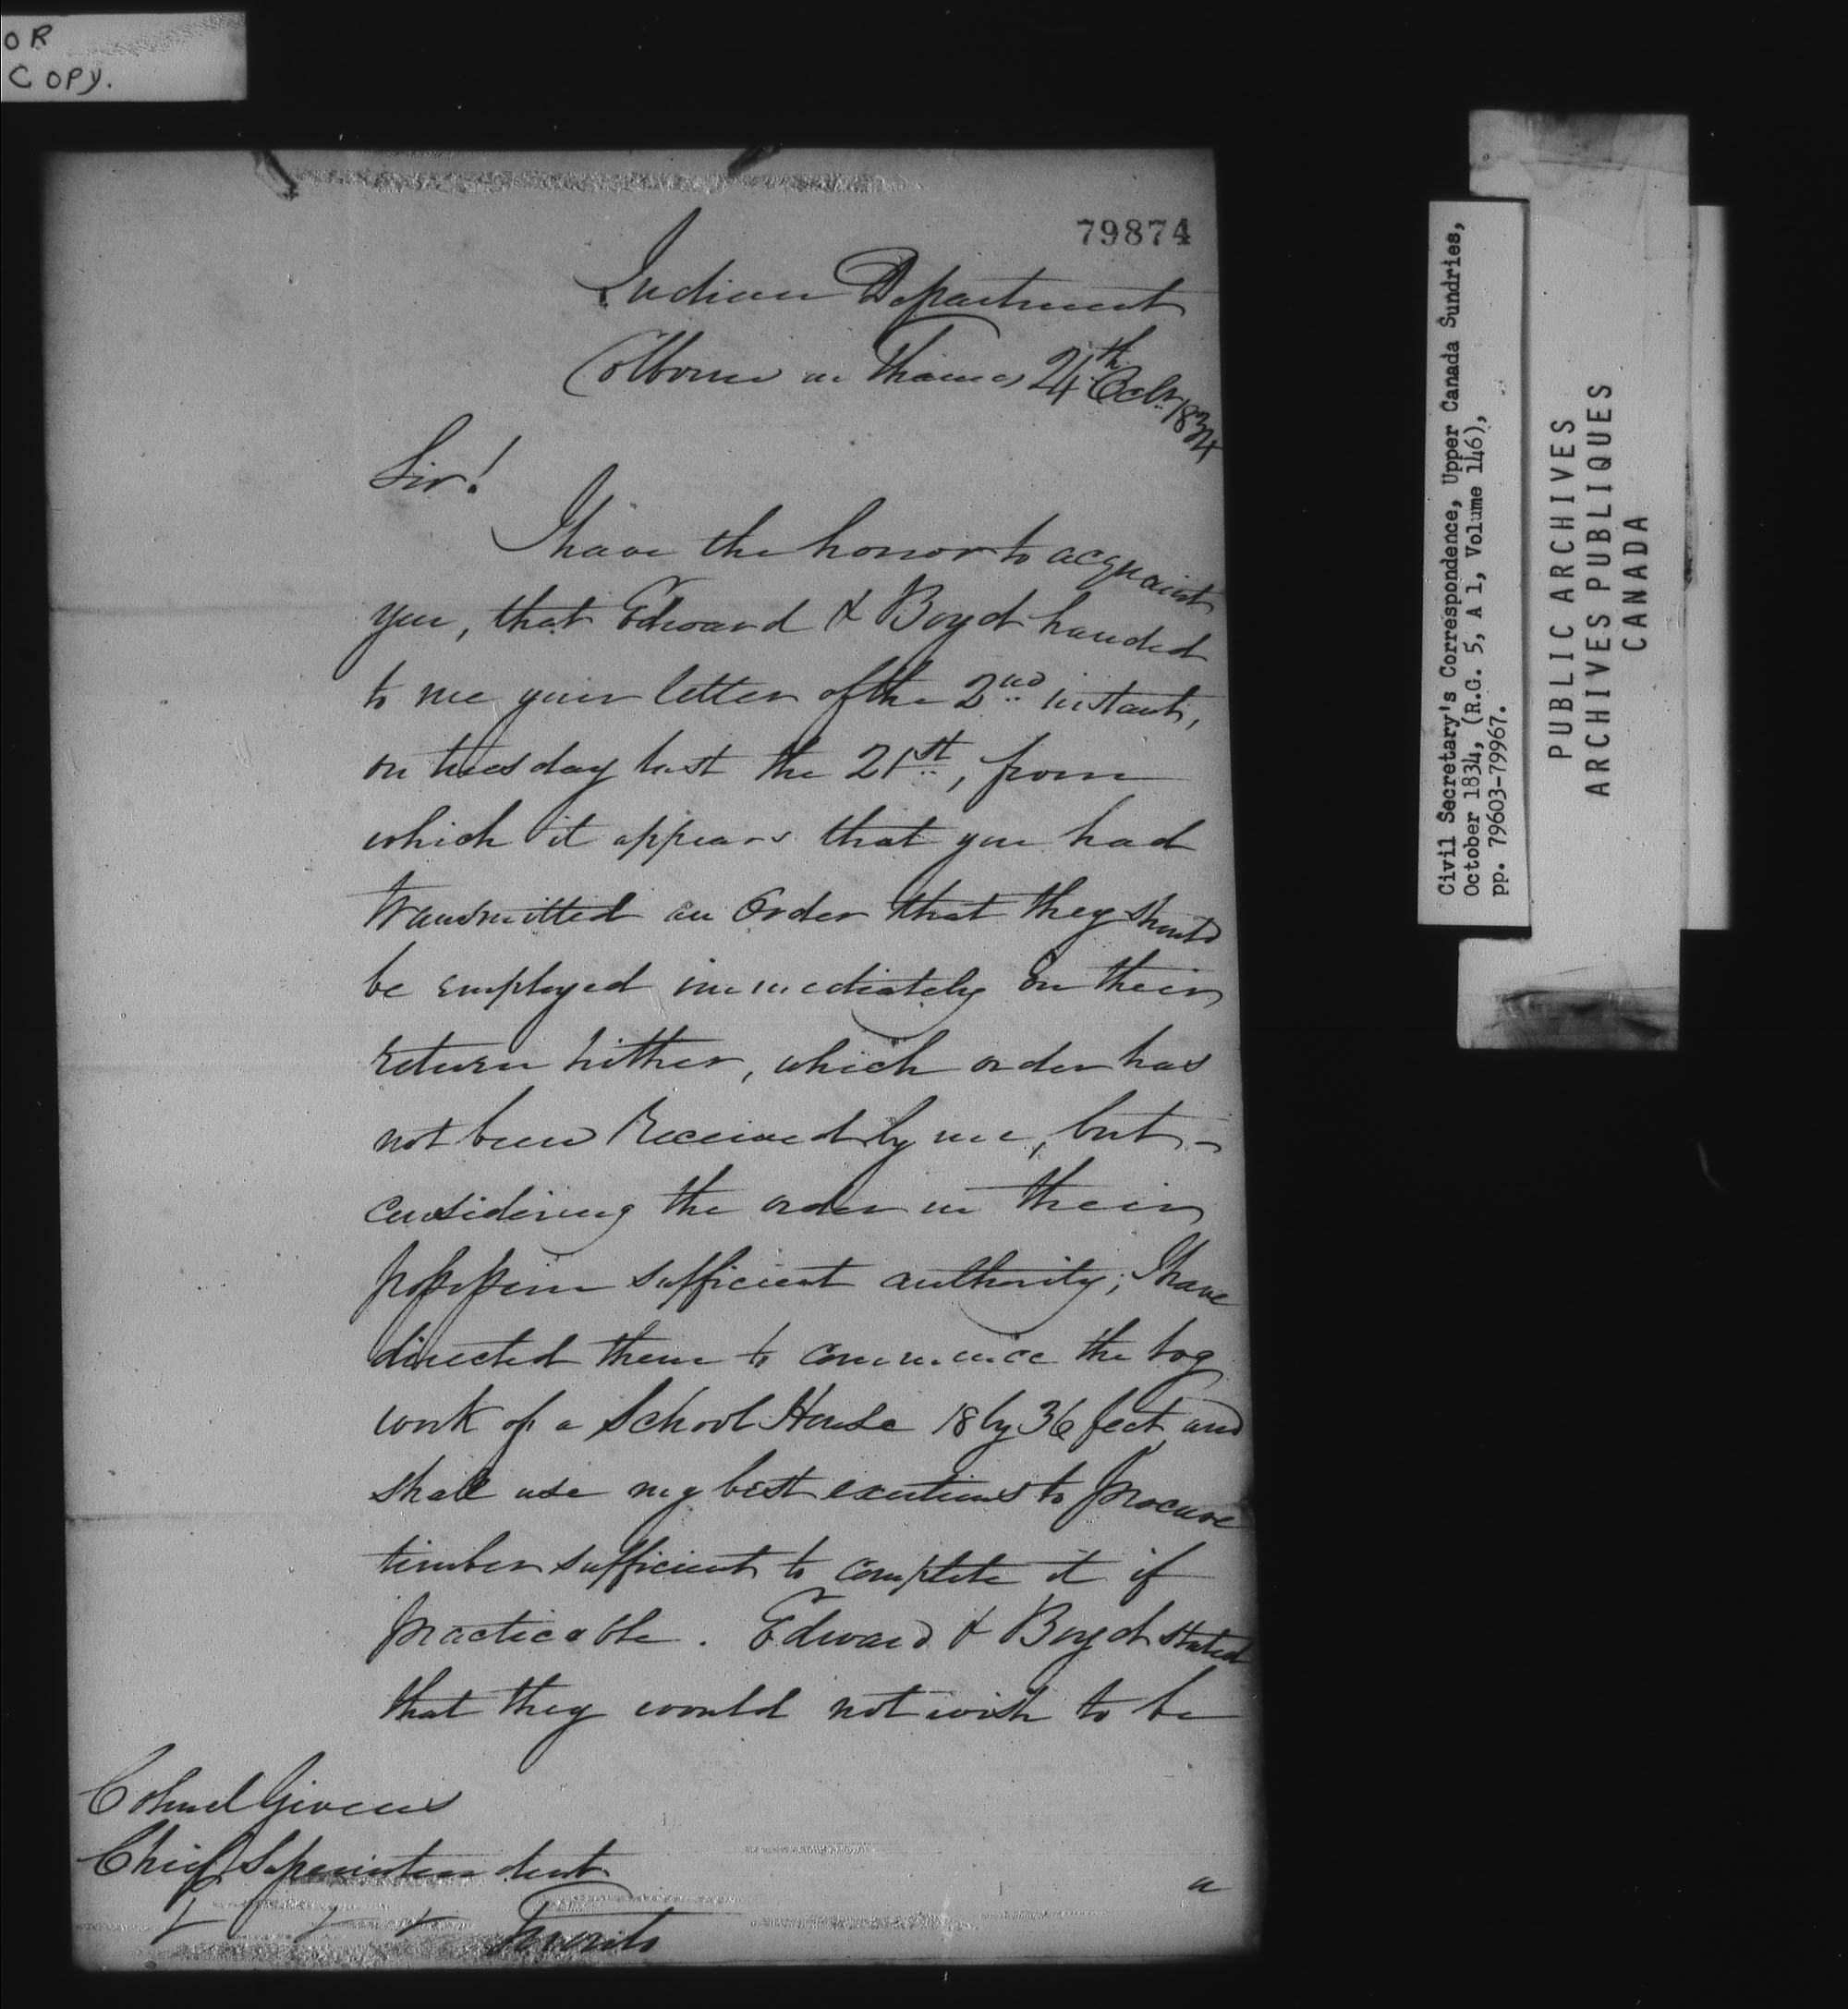 OR
COPY.
79874
Indian Department
Colborne on Thames 24th Octr. 1834
Sir!
I have the honor to acquaint
you, that Edward & Boyd handed
to me your letter of the 2nd instant,
on tuesday last the 21st, from
which it appears that you had
transmitted an Order that they should
be employed immediately on their
return hither, which order has
not been received by me, but -
considering the order in their
possession sufficient authority; I have
directed them to commence the log
work of a School House 18 by 36 feet and
shall use my best exertions to procure
timber sufficient to complete it if
practicable. Edward & Boyd stated
that they would not wish to be
Colonel Givens
Chief Superintendent
Toronto
Civil Secretary's Correspondence, Upper Canada Sundries,
October 1834, (R.G. 5, A 1, Volume 146),
pp. 79603-79967.
PUBLIC ARCHIVES
ARCHIVES PUBLIQUES
CANADA